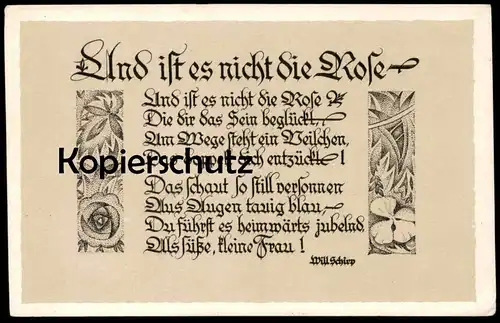 Und ist es nicht die Rose
Und ist es nicht die Rose?
Die dir das Sein beglückt,
Am Wege steht ein Veilchen,
dich entzückt!
Kopierschutz
Das schaut so still versonnen
Aus Augen tauig blau
Du führst es heimwärts jubelnd,
Als süße, kleine Frau!
Will Schirp